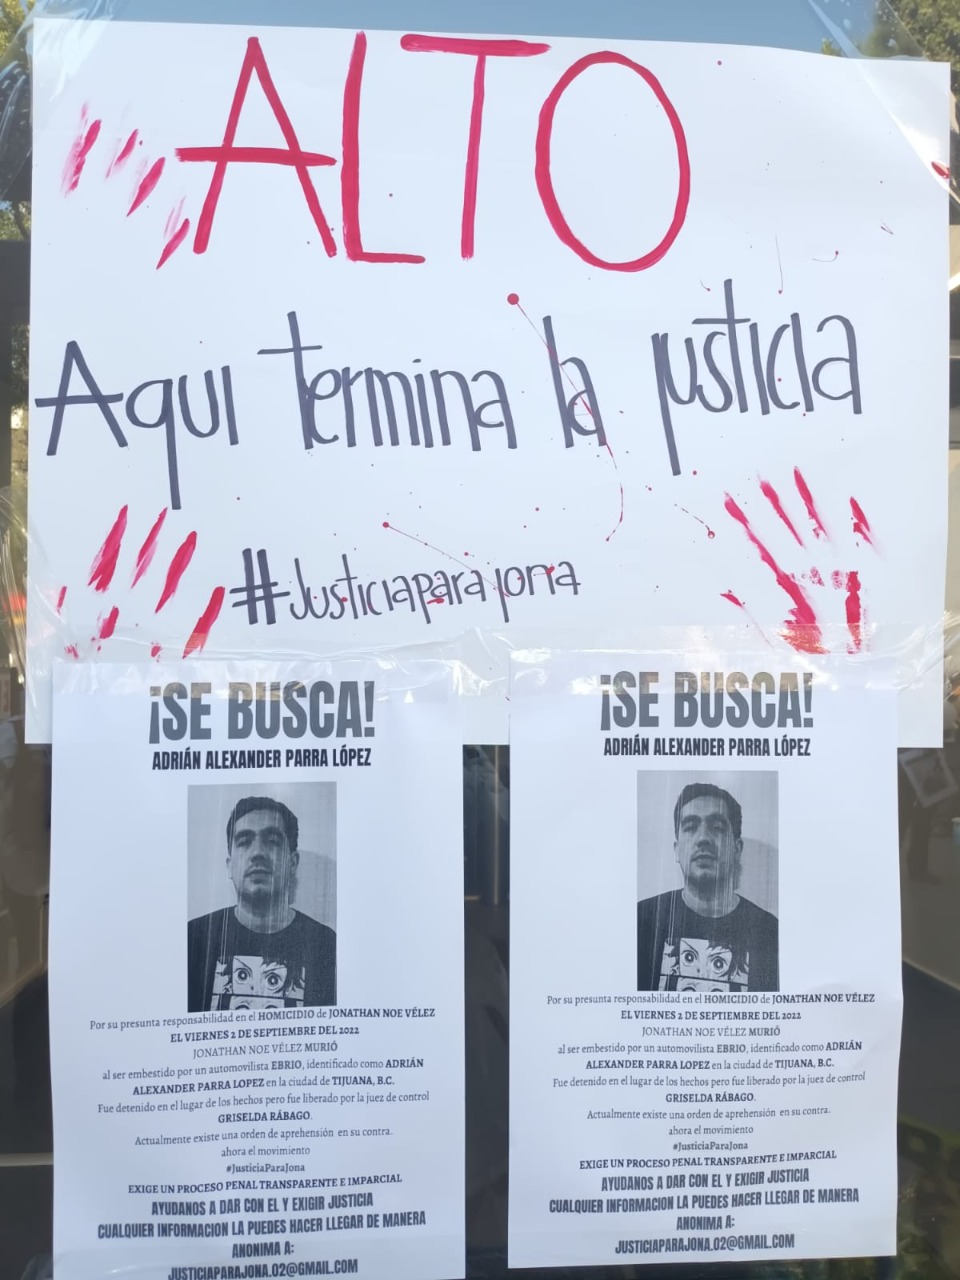 ALTO
Aqui termina la justicia
#Justiciaparajona
¡SE BUSCA!
ADRIÁN ALEXANDER PARRA LÓPEZ
Por su presunta responsabilidad en el HOMICIDIO de JONATHAN NOE VÉLEZ
EL VIERNES 2 DE SEPTIEMBRE DEL 2022
JONATHAN NOE VÉLEZ MURIÓ
al ser embestido por un automovilista EBRIO, identificado como ADRIÁN
ALEXANDER PARRA LOPEZ en la ciudad de TIJUANA, B.C.
Fue detenido en el lugar de los hechos pero fue liberado por la juez de control
GRISELDA RÁBAGO.
Actualmente existe una orden de aprehensión en su contra.
ahora el movimiento
#JusticiaParaJona
EXIGE UN PROCESO PENAL TRANSPARENTE E IMPARCIAL
AYUDANOS A DAR CON EL Y EXIGIR JUSTICIA
CUALQUIER INFORMACION LA PUEDES HACER LLEGAR DE MANERA
ANONIMA A:
JUSTICIAPARAJONA.02@GMAIL.COM
¡SE BUSCA!
ADRIÁN ALEXANDER PARRA LÓPEZ
Por su presunta responsabilidad en el HOMICIDIO de JONATHAN NOE VÉLEZ
EL VIERNES 2 DE SEPTIEMBRE DEL 2022
JONATHAN NOE VÉLEZ MURIÓ
al ser embestido por un automovilista EBRIO, identificado como ADRIÁN
ALEXANDER PARRA LOPEZ en la ciudad de TIJUANA, B.C.
Fue detenido en el lugar de los hechos pero fue liberado por la juez de control
GRISELDA RÁBAGO.
Actualmente existe una orden de aprehensión en su contra.
ahora el movimiento
#JusticiaParaJona
EXIGE UN PROCESO PENAL TRANSPARENTE E IMPARCIAL
AYUDANOS A DAR CON EL Y EXIGIR JUSTICIA
CUALQUIER INFORMACION LA PUEDES HACER LLEGAR DE MANERA
ANONIMA A:
JUSTICIAPARAJONA.02@GMAIL.COM